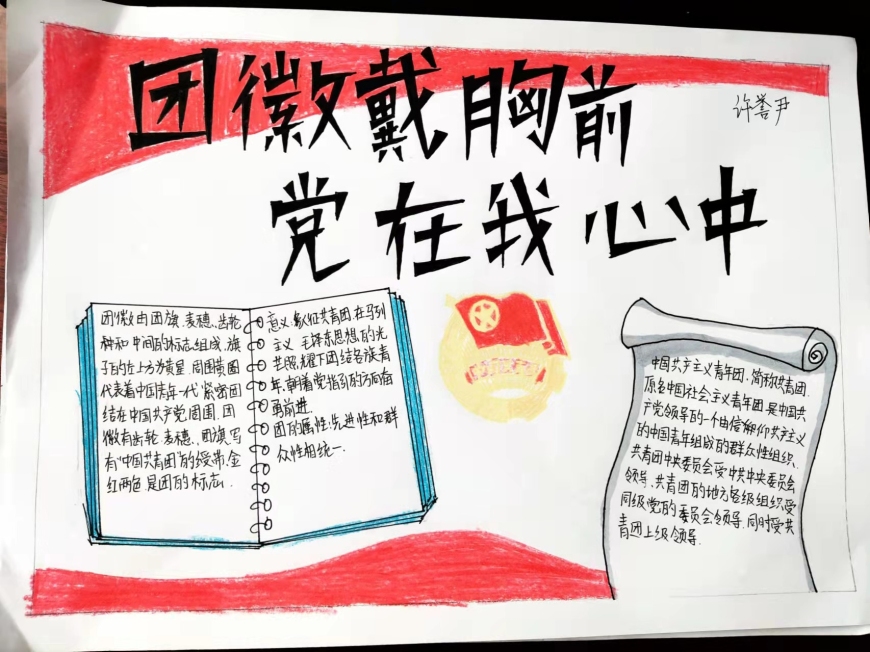 团徽戴胸前
许誉尹
党在我心中
团徽由团旗、麦穗、齿轮
种和中间的标志组成,旗
子的左上方为黄星,周围黄圈
代表着中国青年一代紧密团
结在中国共产党周围,团
徽有齿轮、麦穗、团旗,写
有“中国共青团”的绶带,金
红两色是团的标志.
意义:象征共青团,在马列
主义、毛泽东思想的光
芒照耀下团结各族青
年,朝着党指引的方向奋
勇前进.
团的属性:先进性和群
众性相统一.
中国共产主义青年团,简称共青团,
原名中国社会主义青年团,是中国共
产党领导的一个由信仰共产主义
的中国青年组成的群众性组织.
共青团中央委员会受中共中央委员会
领导,共青团的地方各级组织受
同级党的委员会领导,同时受共
青团上级领导.